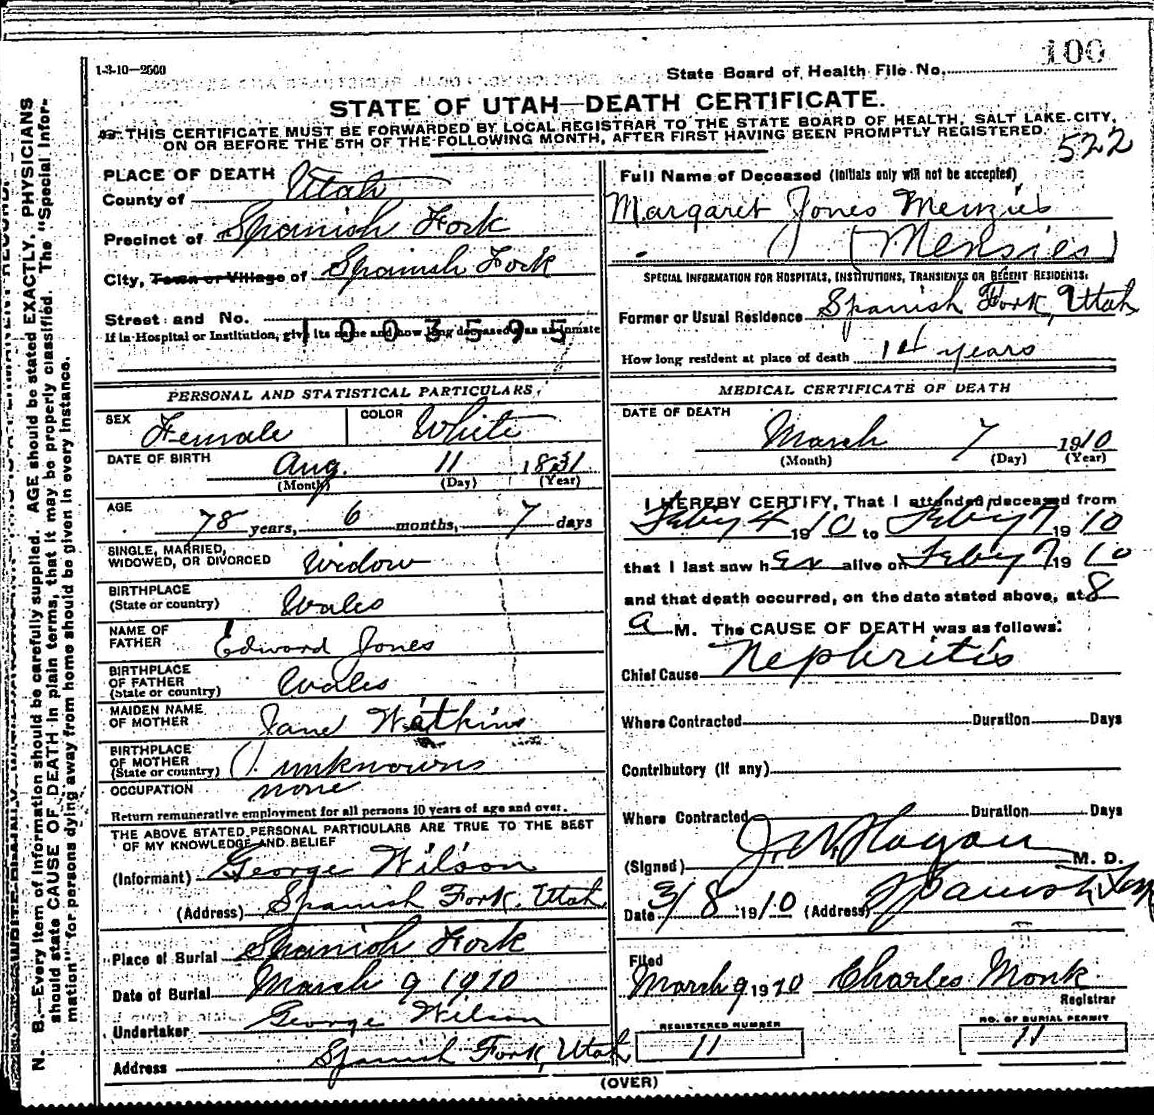 1-3-10—2500
State Board of Health File No. 100
STATE OF UTAH—DEATH CERTIFICATE.
THIS CERTIFICATE MUST BE FORWARDED BY LOCAL REGISTRAR TO THE STATE BOARD OF HEALTH, SALT LAKE CITY,
ON OR BEFORE THE 5TH OF THE FOLLOWING MONTH, AFTER FIRST HAVING BEEN PROMPTLY REGISTERED.
522
PLACE OF DEATH
County of Utah
Precinct of Spanish Fork
City, Town or Village of Spanish Fork
Street and No.
If in Hospital or Institution, give its name and how long deceased was an inmate
1003595
PERSONAL AND STATISTICAL PARTICULARS
SEX Female COLOR White
DATE OF BIRTH Aug. 11 1831
(Month) (Day) (Year)
AGE 78 years, 6 months, 7 days
SINGLE, MARRIED,
WIDOWED, OR DIVORCED Widow
BIRTHPLACE
(State or country) Wales
NAME OF
FATHER Edward Jones
BIRTHPLACE
OF FATHER
(State or country) Wales
MAIDEN NAME
OF MOTHER Jane Watkins
BIRTHPLACE
OF MOTHER
(State or country) unknown
OCCUPATION none
Return remunerative employment for all persons 10 years of age and over.
THE ABOVE STATED PERSONAL PARTICULARS ARE TRUE TO THE BEST
OF MY KNOWLEDGE AND BELIEF
(Informant) George Wilson
(Address) Spanish Fork, Utah
Place of Burial Spanish Fork
Date of Burial March 9 1910
Undertaker George Wilson
Address Spanish Fork, Utah
Full Name of Deceased (Initials only will not be accepted)
Margaret Jones Menzies
(Mensies)
SPECIAL INFORMATION FOR HOSPITALS, INSTITUTIONS, TRANSIENTS OR RECENT RESIDENTS:
Former or Usual Residence Spanish Fork, Utah
How long resident at place of death 14 years
MEDICAL CERTIFICATE OF DEATH
DATE OF DEATH
March 7 1910
(Month) (Day) (Year)
I HEREBY CERTIFY, That I attended deceased from
Feby 4 1910 to Feby 7 1910
that I last saw her alive on Feby 7 1910
and that death occurred, on the date stated above, at 8
a M. The CAUSE OF DEATH was as follows:
Chief Cause Nephritis
Where Contracted Duration Days
Contributory (if any)
Where Contracted Duration Days
(Signed) M. D.
Date 3/8 1910 (Address) Spanish Fork
Filed
March 9 1910 Charles Monk
Registrar
REGISTERED NUMBER
11
NO. OF BURIAL PERMIT
11
(OVER)
N. B.—Every item of information should be carefully supplied. AGE should be stated EXACTLY. PHYSICIANS
should state CAUSE OF DEATH in plain terms, that it may be properly classified. The "Special Infor-
mation" for persons dying away from home should be given in every instance.